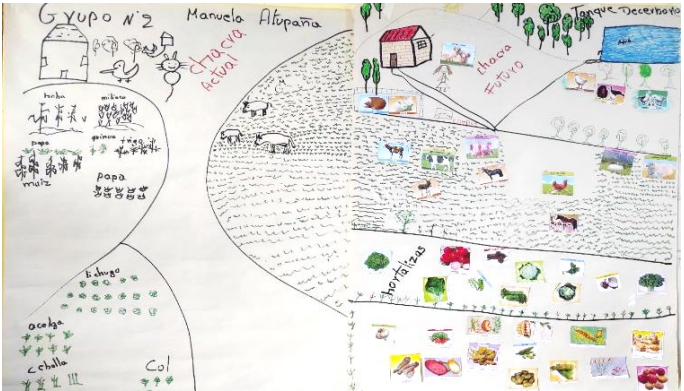 Grupo N°2
Manuela Atupaña
chacra
Actual
haba
papa
quinua
maiz
papa
lichugo
acelga
cebolla
Col
Tanque De
chacra
Futuro
hortalizas